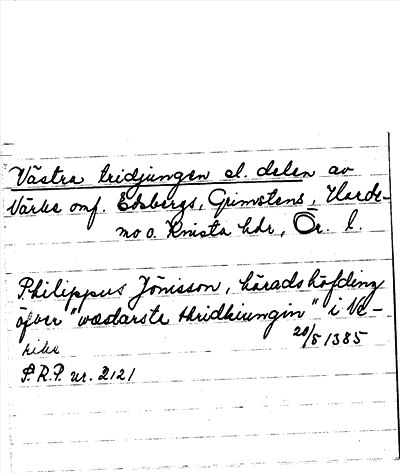 Västra tridjungen el. delen av
Närke omf. Edsbergs, Grimstens, Harde-
mo o. Knista hdr, Ör. l.
Philippus Jönisson, häradshöfding
öfver "wæstarste thridhiungin" i Ne-
rike 20/5 1385
P.R.P. nr. 2121